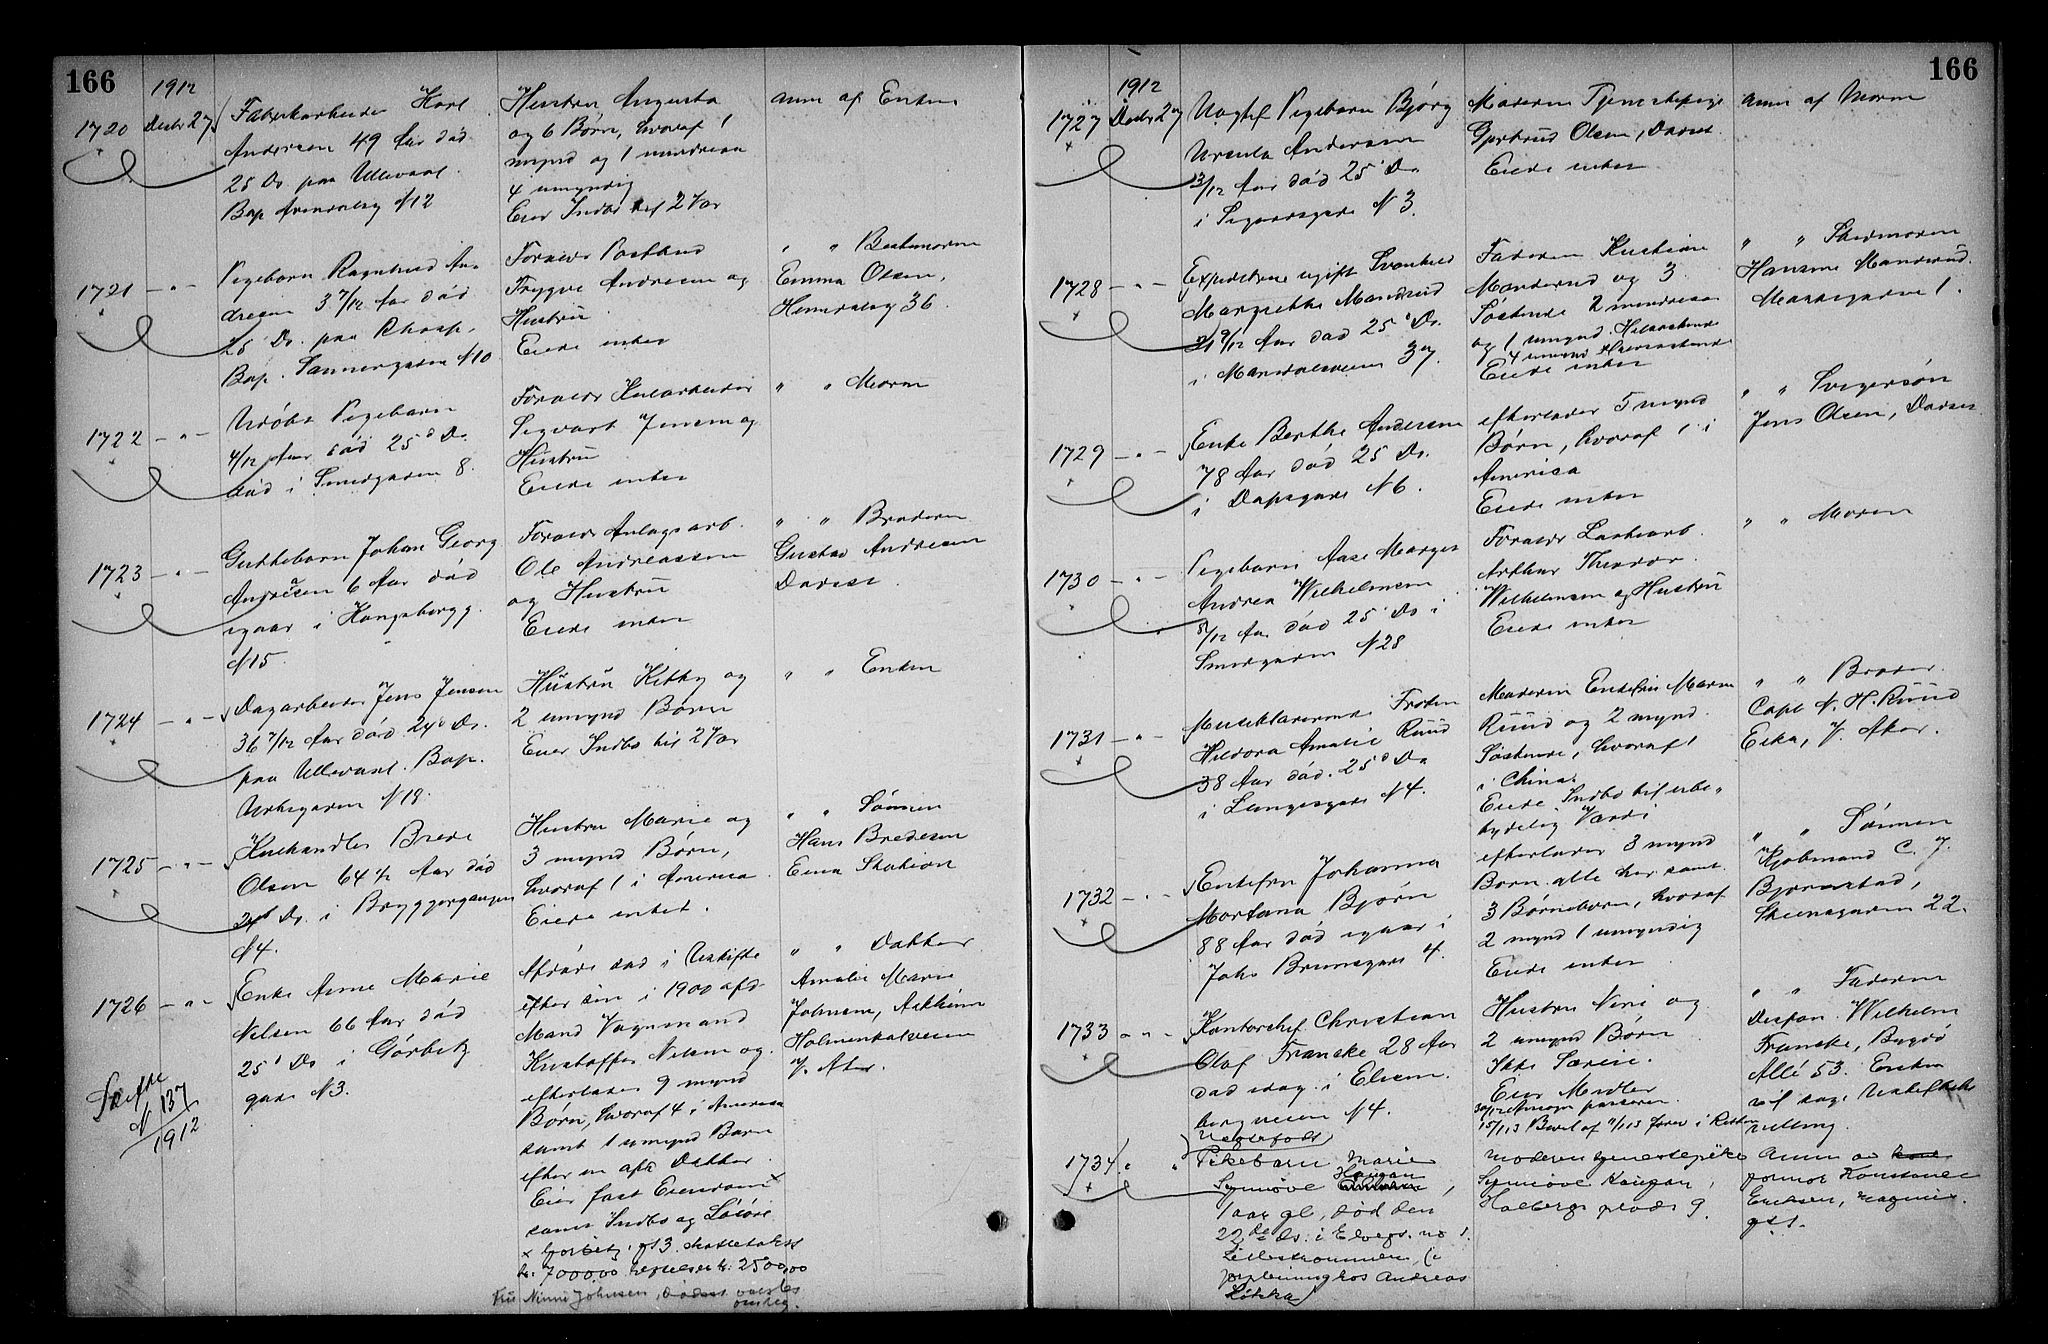 166
1912
1720 Decbr 27
Fabrikarbeider Karl
Andersen 49 Aar död
25 Ds paa Ullevaal
Bop Arendalsg N12
Hustru Augusta
og 6 Børn, hvoraf 1
mynd og 1 mindreaa
4 umyndig
Eier Indbo
Anm af Enken
1721 - " -
Pigebarn Ragnhild An-
dresen 3 7/12 Aar död
25 Ds. paa Rhosp.
Bop. Sannergaden N10
Forældr Postbud
Trygve Andresen og
Hustru
Eiede intet
" " Bestemoren
Emma Olsen,
36.
1722 - " -
Udöbt Pigebarn
4/12 Aar död 25d Ds.
död i Smedgaden 8.
Forældr
Sigvart Jensen og
Hustru
Eiede intet
" " Moren
1723 - " -
Guttebarn Johan Georg
Andresen 6 Aar död
igaar i Kongsbergg.
N15.
Forældr Anlægsarb.
Ole Andreassen
og Hustru
Eiede intet
" " Broderen
Gustav Andresen
Dødsst.
1724 - " -
Dagarbeider Jens Jensen
36 7/12 Aar död 24d Ds.
paa Ullevaal. Bop.
Urtegaden N18.
Hustru Kitty og
2 umynd Børn
Eier Indbo
" " Enken
1725 - " -
Kulhandler Brede
Olsen 64 1/2 Aar död
24d Ds. i Bryggergangen
N4.
Hustru Marie og
3 mynd Børn,
hvoraf 1 i America
Eiede intet.
" " Sønnen
Hans Bredesen
Eina Station
1726 - " -
Enke Anne Marie
Nilsen 66 Aar död
25d Ds i Görbitz
gade N3.
Skifte
N 137
1912
Afdøde sad i Uskifte
efter sin i 1900 afd-
Mand Vognmand
Kristoffer Nilsen og
efterlader 9 mynd
Børn, hvoraf 4 i America
samt 1 umynd Barn
efter en afd Datter.
Eier fast Eiendom x
samt Indbo og Løsøre
x Gørbitz. gt 3. skattetakst
kr. 70000.00 heftelser kr. 25000,00
Fru Ninni Johnsen, Dødsst
" " Datter
Amalie Marie
Johnsen,
Holmenkolveien
V. Aker.
166
1912
1727 Decbr 27
Uægtef Pigebarn Bjørg
Ursula Andersen
3/12 Aar död 25d Ds
i Sigurdsgade N 3.
Moderen Tjenestepige
Gjertrud Olsen, Dødsst.
Eiede intet
Anm af Moren
1728 - " -
Expeditrice ugift Svanhild
Margrethe Manderud
21 9/12 Aar död 25d Ds.
i Mandalsveien 37.
Faderen Kristian
Manderud og 3
Søskende 2 mindreaa
og 1 umynd. Helsøskende
4 umynd Halvsøskende
Eiede intet
" " Stedmoren
Hansine Manderud.
1.
1729 - " -
Enke Berthe Andersen
78 Aar död 25 Ds.
i Dapsgade N6.
efterlader 5 mynd
Børn, hvoraf 1 i
America
Eiede intet
" " Svigersön
Jens Olsen, Dødsst
1730 - " -
Pigebarn Aase Margit
Andrea Wilhelmsen
5/12 Aar död 25d Ds i
Smedgaden N28
Forældr Lastearb.
Arthur Theodor
Wilhelmsen og Hustru
Eiede intet
" " Moren
1731 - " -
Musiklærerinde Frøken
Hildora Amalie Ruud
38 Aar död. 25d Ds
i Langesgade N4.
Moderen Enkefru Maren
Ruud og 2 mynd.
Søskende, hvoraf 1
i China.
Eiede Indbo til ube-
tydelig Værdi
" " Broder
Capt N. H. Ruud
V. Aker.
1732 - " -
Enkefru Johanna
Martana Bjørn
88 Aar död igaar i
Johs Brunsgade 4.
efterlader 3 mynd
Børn alle her samt
3 Børnebørn, hvoraf
2 mynd 1 umyndig
Eiede intet
" " Sønnen
Kjøbmand C. F.
Bjørnestad,
Skiensgaden 22.
1733 " " -
Kontorchef Christian
Olaf Franske 28 Aar
död idag i
N4.
Hustru Nini og
2 umynd Børn
Ikke Særeie.
Eier Midler
" " Faderen
Dispon. Wilhelm
Franske, Bygdø
Allé 53. Enken
1734 " "
Uægtefødt
Pikebarn Marie
Synnøve Haugan,
1 aar gl., död den
22de Ds. i Elvegt. no 1.
Lillestrømmen (i
forpleining hos Andreas
Løkka)
moderen tjenestepike
Synnøve Haugan,
Holbergs plads 9.
Anm av
formor Konstanse
Eriksen,
gt 1.